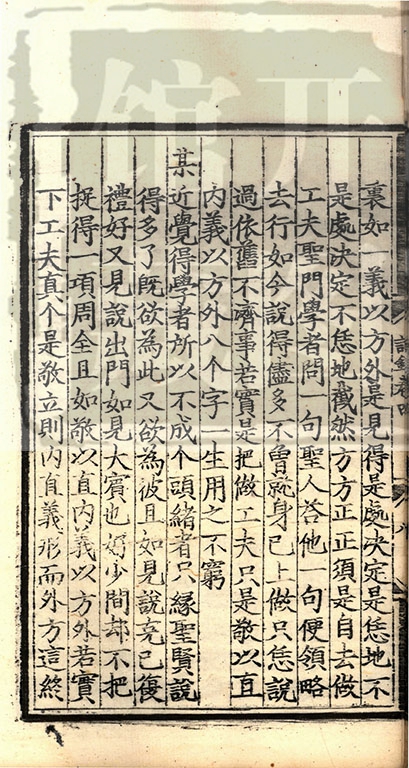 裏如一義以方外是見得是處決定是恁地不
是處決定不恁地截然方方正正須是自去做
工夫聖門學者問一句聖人荅他一句便領略
去行如今說得儘多不曾就身己上做只恁說
過依舊不濟事若實是把做工夫只是敬以直
内義以方外八个字一生用之不窮
某近覺得學者所以不成个頭緒者只緣聖賢說
得多了旣欲為此又欲為彼且如見說克己復
禮好又見說出門如見大賓也好少間却不把
捉得一項周全且如敬以直内義以方外若實
下工夫真个是敬立則内直義形而外方這終